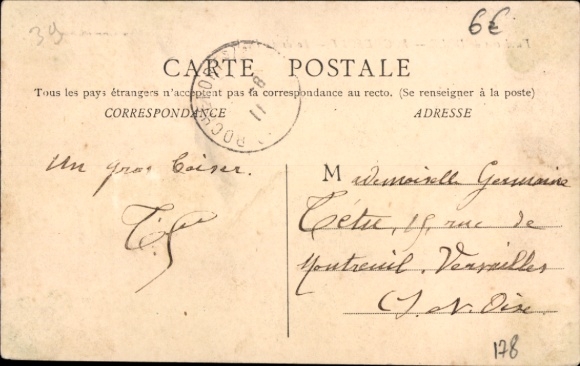 39
6€
CARTE POSTALE
Tous les pays étrangers n'acceptent pas la correspondance au recto. (Se renseigner à la poste)
CORRESPONDANCE
ADRESSE
11 8
Un gros baiser.
Mademoiselle Germaine
Tétu, 15, rue de
Montreuil. Versailles
S. N. Oise.
178